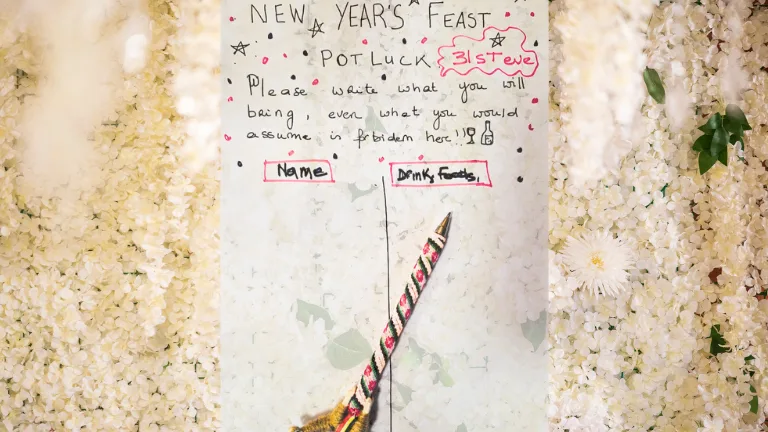 NEW YEAR'S FEAST
POT LUCK 31ST eve
Please write what you will
bring, even what you would
assume is frbiden here!!
Name
Drink, Foods,